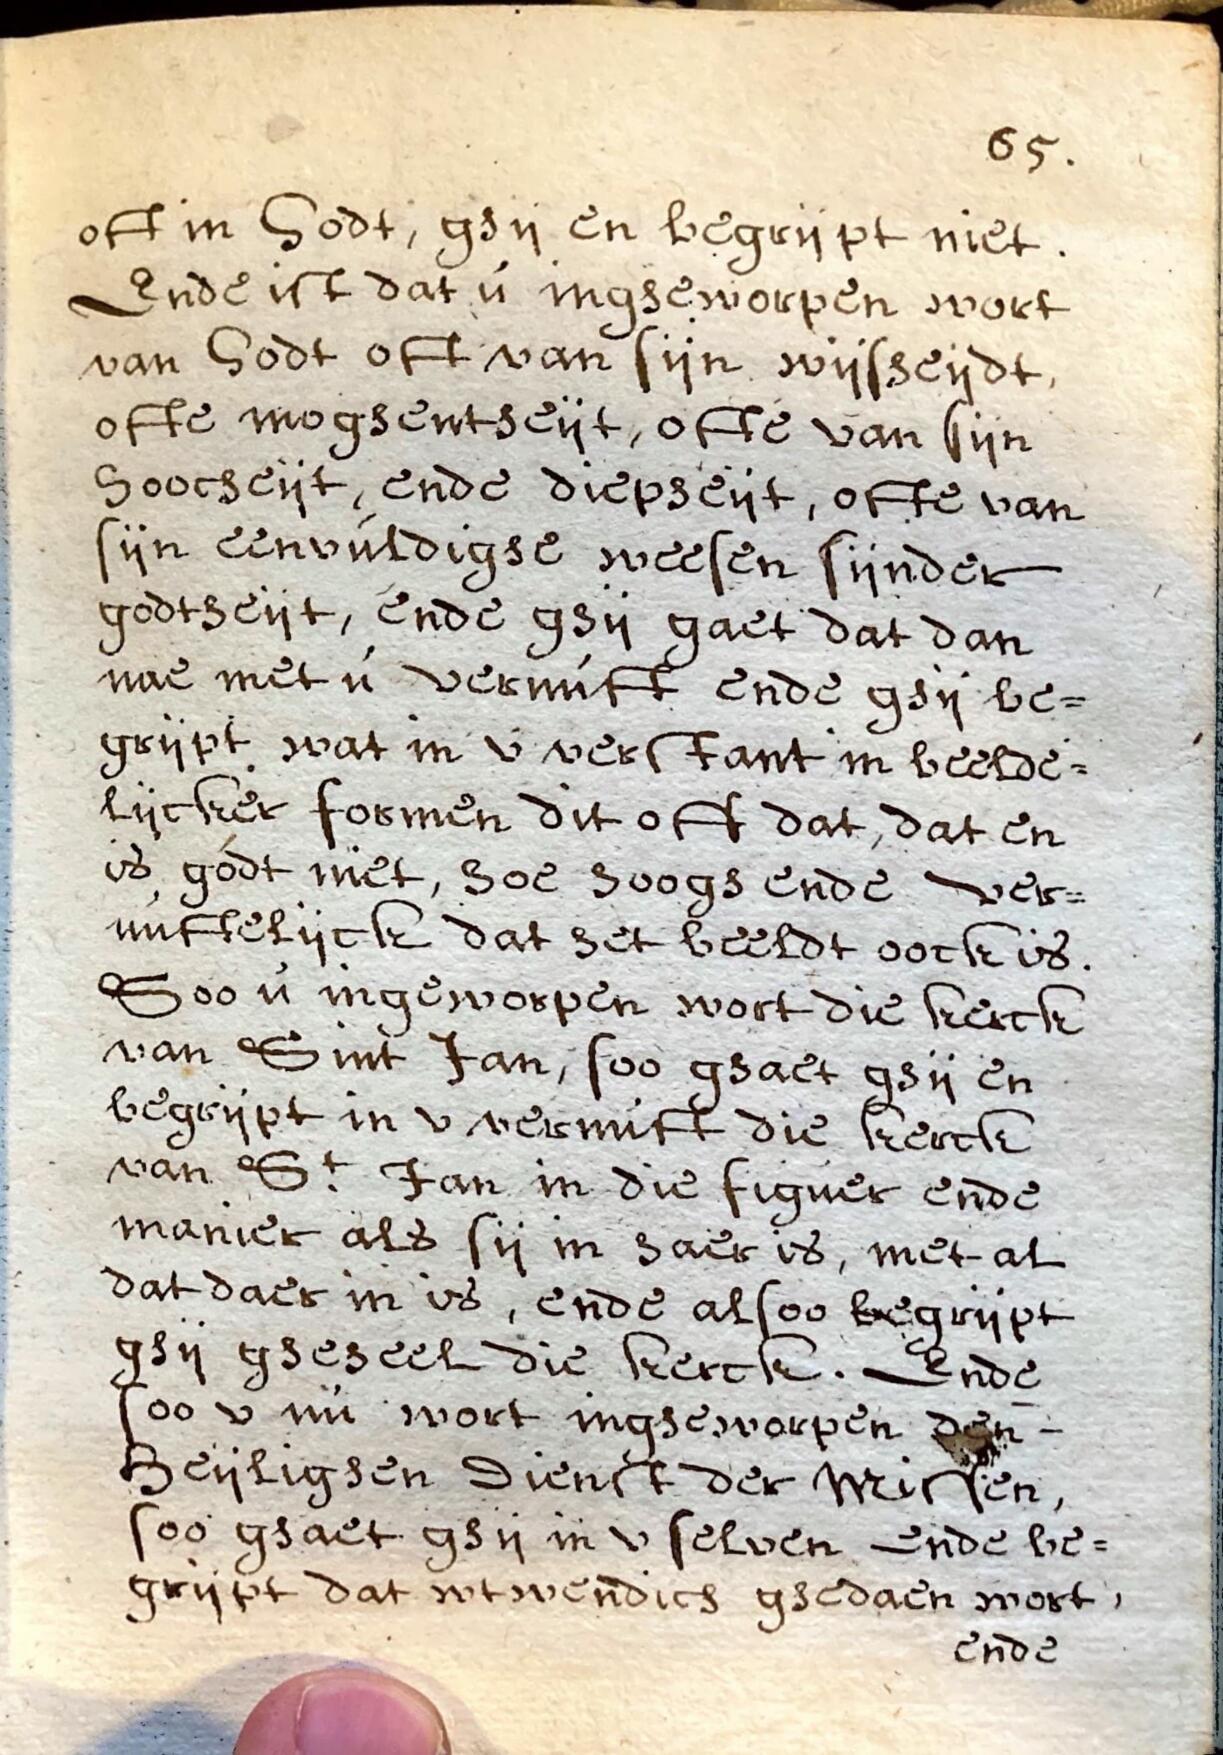 65.
oft in Godt, ghij en begrijpt niet.
Ende ist dat ú ingheworpen wort
van Godt oft van sijn wijsheijdt,
ofte moghentheijt, ofte van sijn
hoocheijt, ende diepheijt, ofte van
sijn eenvúldighe weesen sijnder
godtheijt, ende ghij gaet dat dan
nae met ú vernúft ende ghij be=
grijpt wat in v verstant in beelde=
lijcker formen dit oft dat, dat en
is gódt niet, hoe hoogh ende ver=
núftelijck dat het beeldt oock is.
Soo ú ingeworpen wort die kerck
van Sint Jan, soo ghaet ghij en
begrijpt in v vernúft die kerck
van St. Jan in die figuer ende
manier als sij in haer is, met al
dat daer in is, ende alsoo begrijpt
ghij gheheel die kerck. Ende
soo v nú wort ingheworpen den -
Heijlighen Dienst der Missen,
soo ghaet ghij in v selven ende be=
grijpt dat wtwendich ghedaen wort,
ende